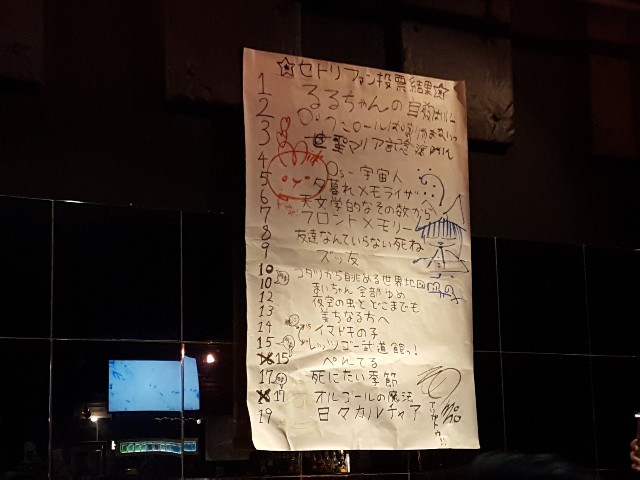 ☆セトリファン投票結果☆
1 るるちゃんの自殺配信
2 パンクロールは鳴り
3 聖マリア記念病院
4 ロッキー宇宙人
5 夕暮れメモライザ
6 天文学的なその欲から
7 フロントメモリー
8 友達なんていらない死ね
9 ズッ友
10 コタツから眺める世界地図
10 まいちゃん全部ゆめ
12 夜空の虫とどこまでも
13 美ちなる方へ
14 イマドキの子
15 レッツゴー武道館っ!
15 ぺんてる
17 死にたい季節
17 オルゴールの魔法
19 日々カルチャア
アリガトウ!!